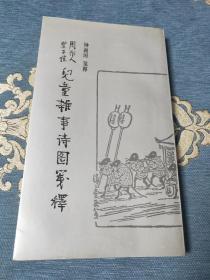 鍾叔河 箋釋
周作人
豐子愷
兒童雜事诗图箋釋